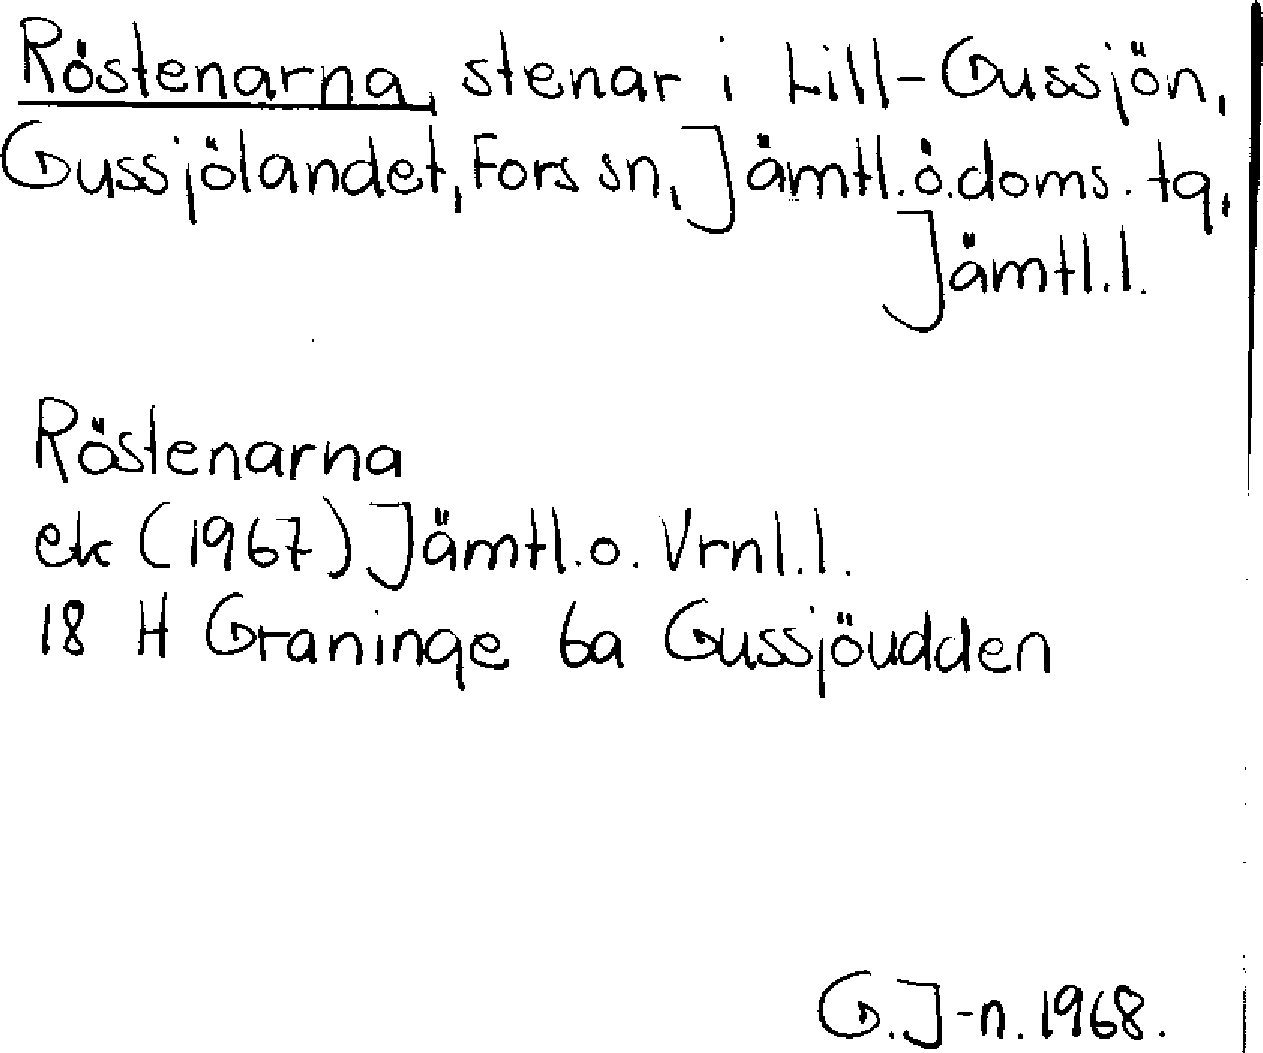 Röstenarna, stenar i Lill-Gussjön,
Gussjölandet, Fors sn, Jämtl.ö.doms.tg,
Jämtl.l.
Röstenarna
ek (1967) Jämtl.o. Vrnl.l.
18 H Graninge 6a Gussjöudden
G.J-n. 1968.